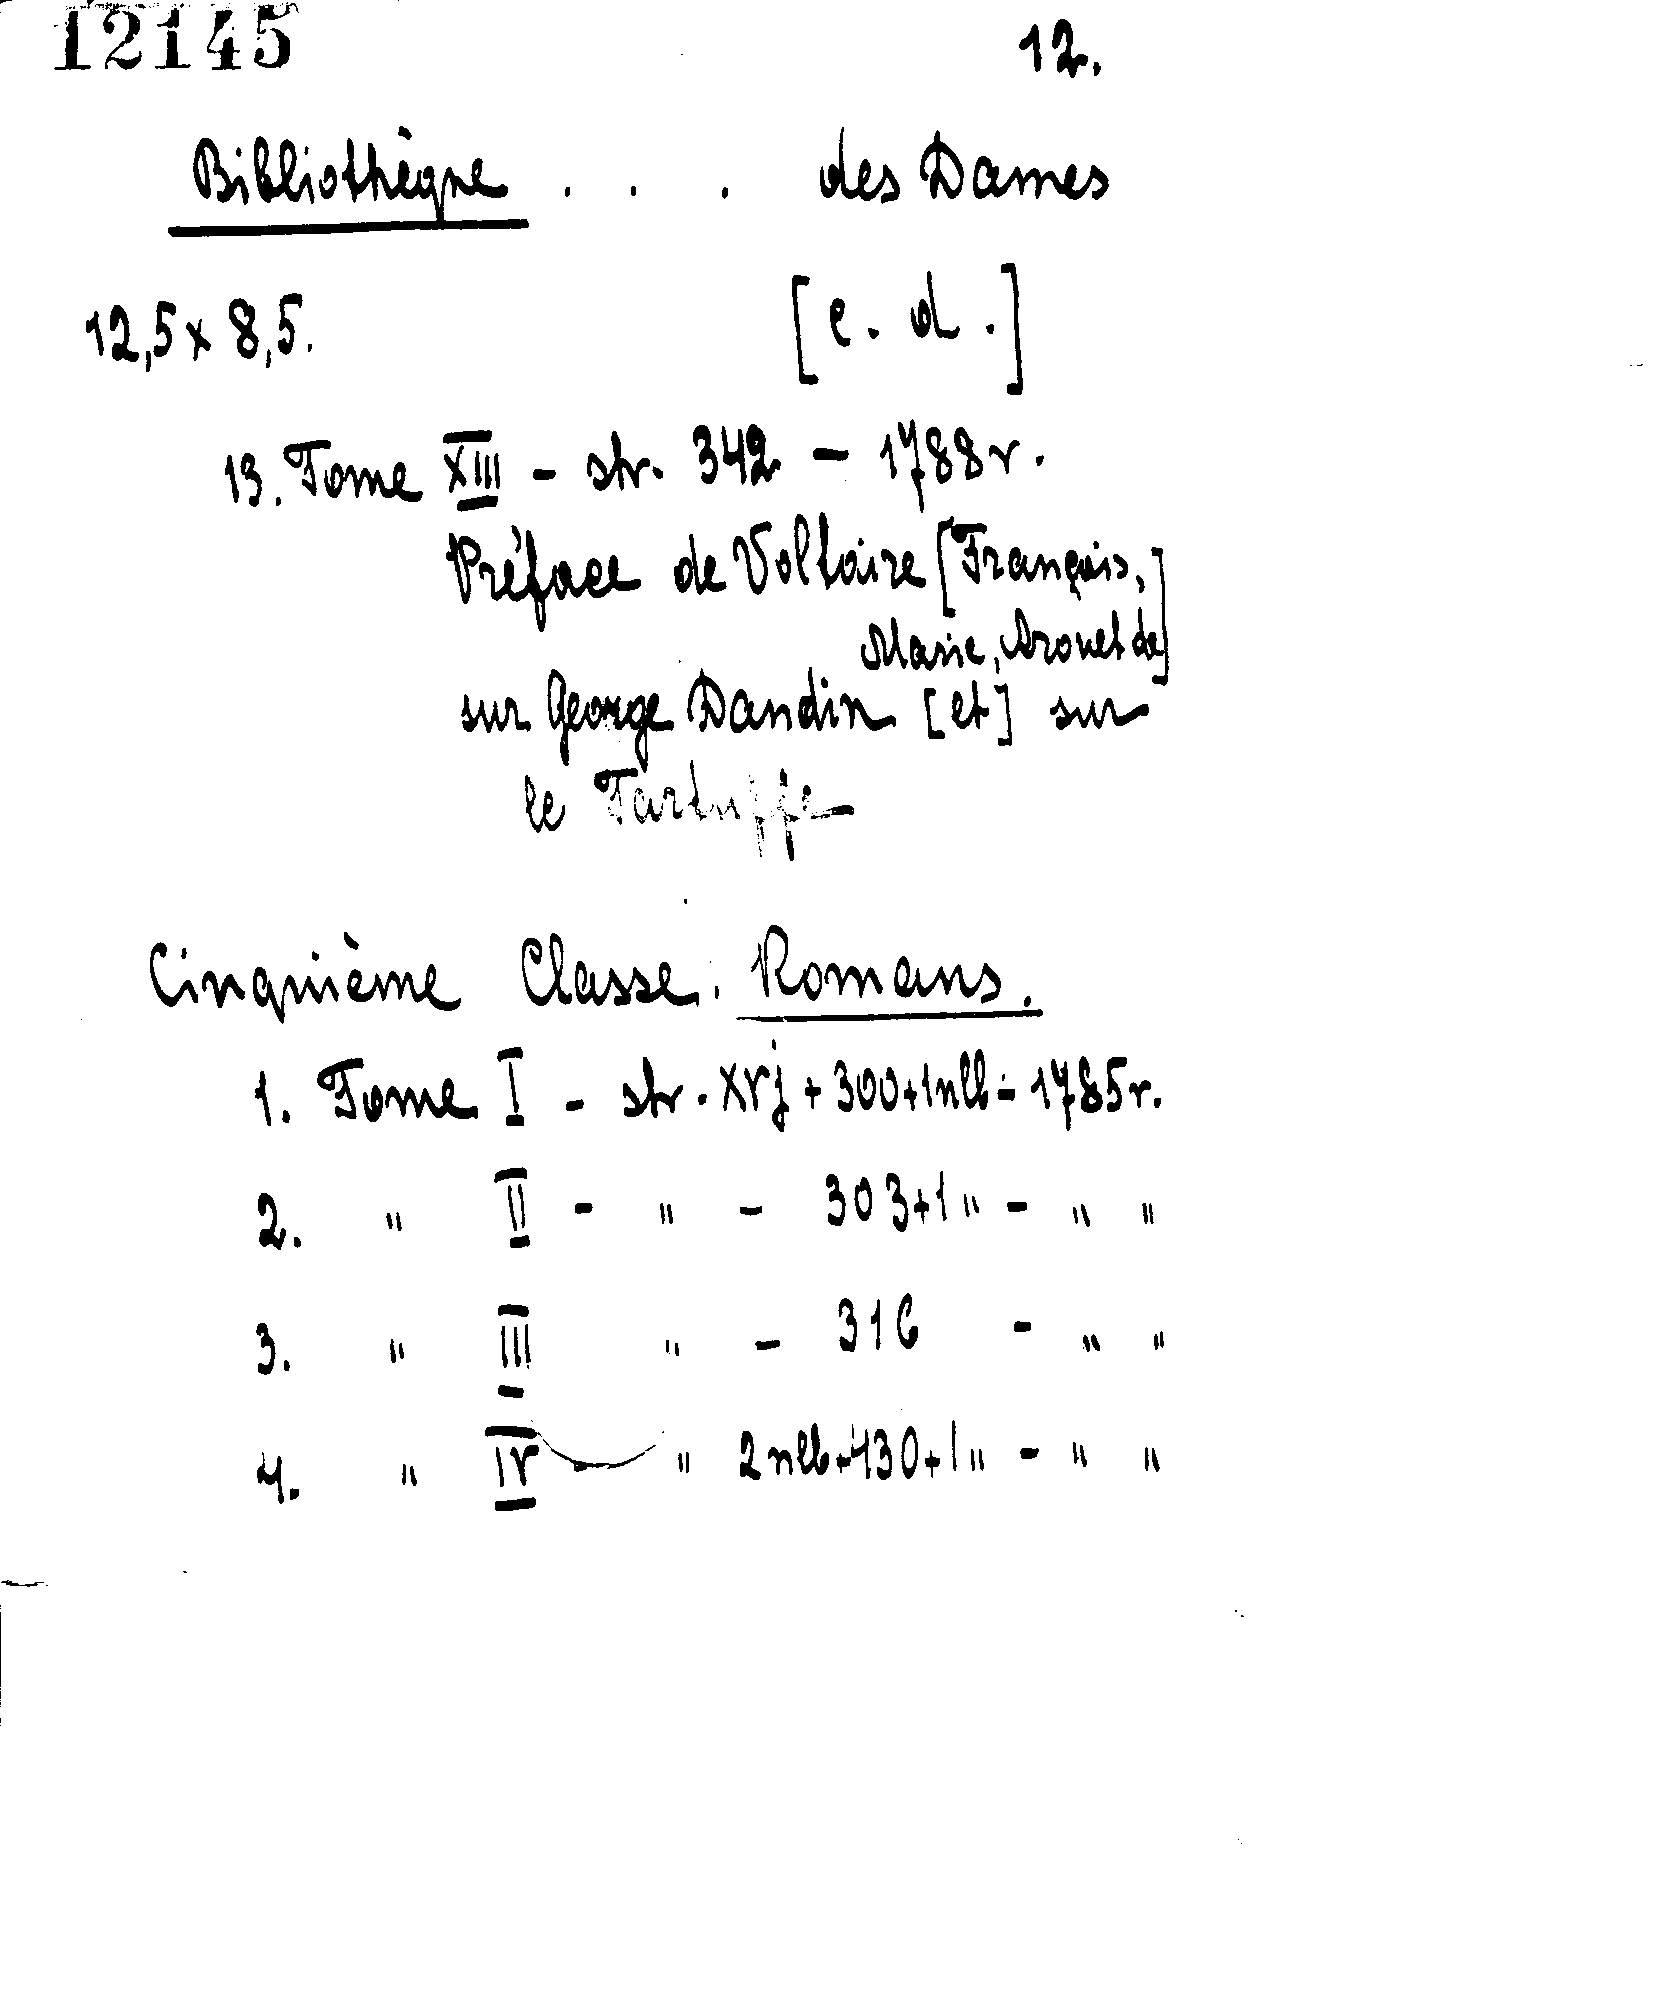 12145 12.
Bibliothèque . . . des Dames
12,5 x 8,5. [c. d.]
13. Tome XIII - str. 342 - 1788 r.
Préface de Voltaire [François,
Marie, Arouet de]
sur George Dandin [et] sur
le Tartuffe
Cinquième Classe. Romans.
1. Tome I - str. XVj + 300 + 1 nlb - 1785 r.
2. " II - " - 303 + 1 " - " "
3. " III " - 316 - " "
4. " IV " 2 nlb + 130 + 1 " - " "